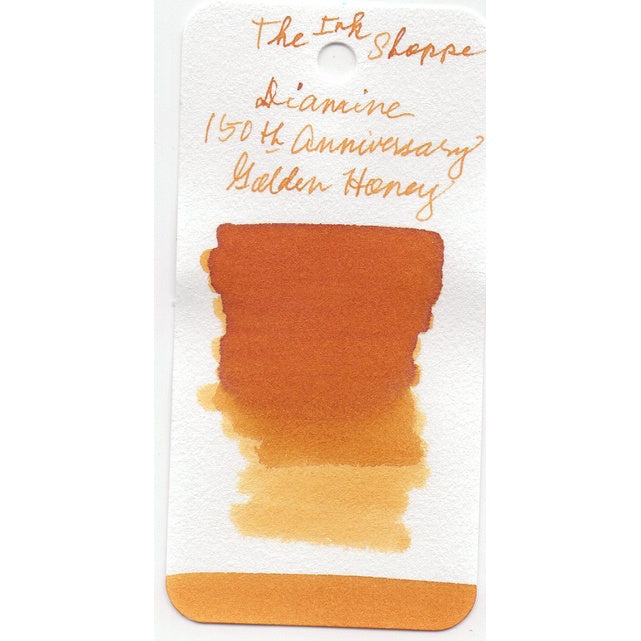 The Ink Shoppe
Diamine
150th Anniversary
Golden Honey